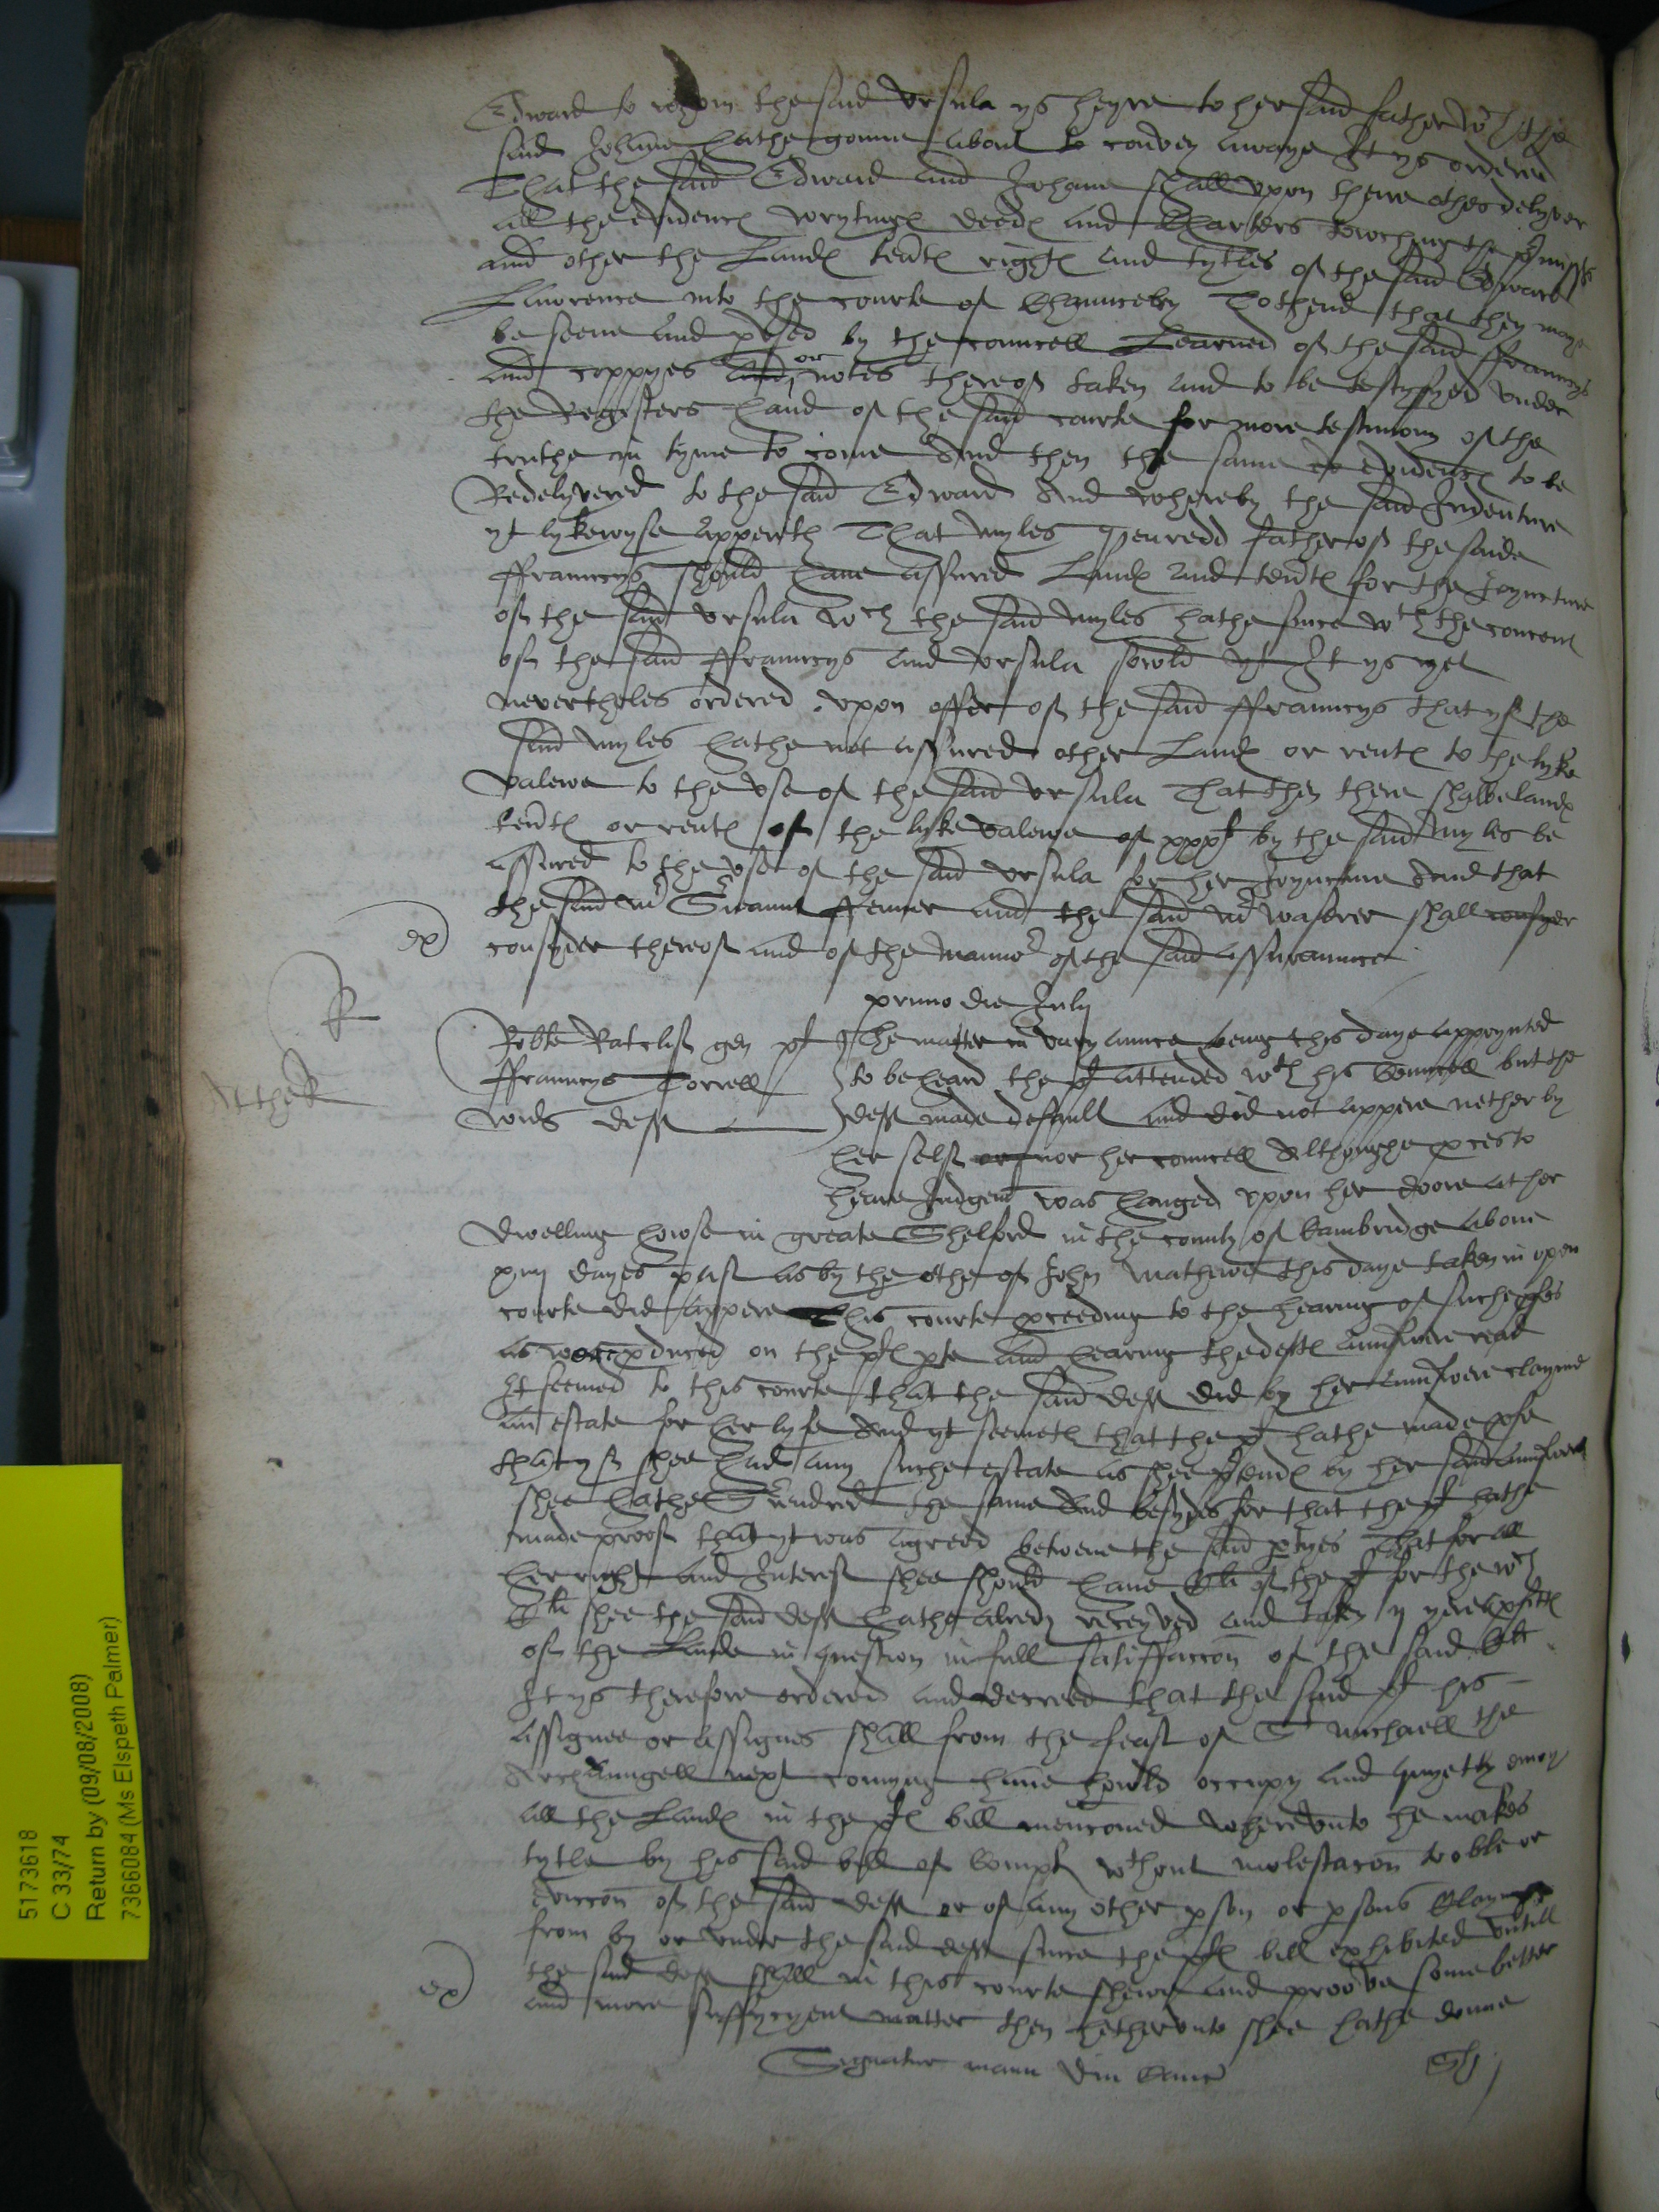 Edward to whom the said Ursula ys heyre to her said father wch the
said Johane hathe gonne about to convey awaye It ys ordered
That the said Edward and Johane shall upon theire othes delyver
all the evidence wrytinge deede and Charters towching the pmisses
and other the Lande tente righte and tytles of the said Edward
Lawrence into the courte of Chauncery To thend that they maye
be seene and pused by the councell Learned of the said Ffrauncys
and coppyes and or notes thereof taken and to be testyfyed under
the Registers hand of the said courte for more testimony of the
truthe in tyme to come And then the same evidence to be
Redelyvered to the said Edward And whereby the said Indenture
yt lykewyse apperith That Myles father of the saide
Ffrauncys should have assured Lande and tente for the Joyncture
of the said Ursula wch the said Myles hathe since wth the concent
of the said Ffrauncys and Ursula sowld yt It ys yet
nevertheles ordered upon offer of the said Ffrauncys that yf the
said Myles hathe not assured other Lande or rente to the lyke
valewe to the use of the said Ursula That then there shalbe lande
tente or rente of the lyke valewe of by the said Myles be
assured to the use of the said Ursula for her Joyncture And that
the said Mr and the said Mr shall consyder
consyder thereof and of the manner of the said assuraunce
ex
primo die July
R
Robte Ratclif gen pl
Ffrauncys Torrell
wid deff
The matter in varyaunce being this daye appoynted
to be heard the pl attended wth his Councell but the
deff made default and did not appere nether by
her self or nor her councell Althoughe pces to
heare Judgemt was hanged upon her doore at her
dwelling howse in greate Shelford in the county of Cambridge above
xiiij dayes past as by the othe of John Mathewe this daye taken in open
courte did appere This courte pceeding to the hearing of suche pfes
as were pduced on the ple pte and hearing the deffe aunswere read
It seemed to this courte that the said deff did by her aunswere clayme
an estate for her lyfe And yt seemeth that the pl hathe made pfe
that yf shee had any suche estate as shee ptende by her said aunswere
shee hathe Surendred the same And besydes for that the pl hathe
made proof that yt was agreed betwene the said ptyes That for all
her right and Interest shee should have li of the pl for the wch
li shee the said deff hathe alredy receyved and taken ij yeres pfitte
of the Lande in question in full satisfaccon of the said li
It ys therefore ordered and decreed that the said pl his
assignee or assignes shall from the feast of St Michaell the
Archaungell next comyng have howld occupy and quyetly enioy
all the Lande in the ple bill mencioned whereunto he makes
tytle by his said bill of Complt wthout molestacon troble or
eviccon of the said deff or of any other pson or psons Clayming
from by or under the said deff since the ple bill exhibited untill
the said deff shall in this courte shewe and proove some better
and more suffycyent matter then hetherunto shee hathe donne
ex
Signatur manu Dni Canc
5173618
C 33/74
Return by (09/08/2008)
7366084 (Ms Elspeth Palmer)